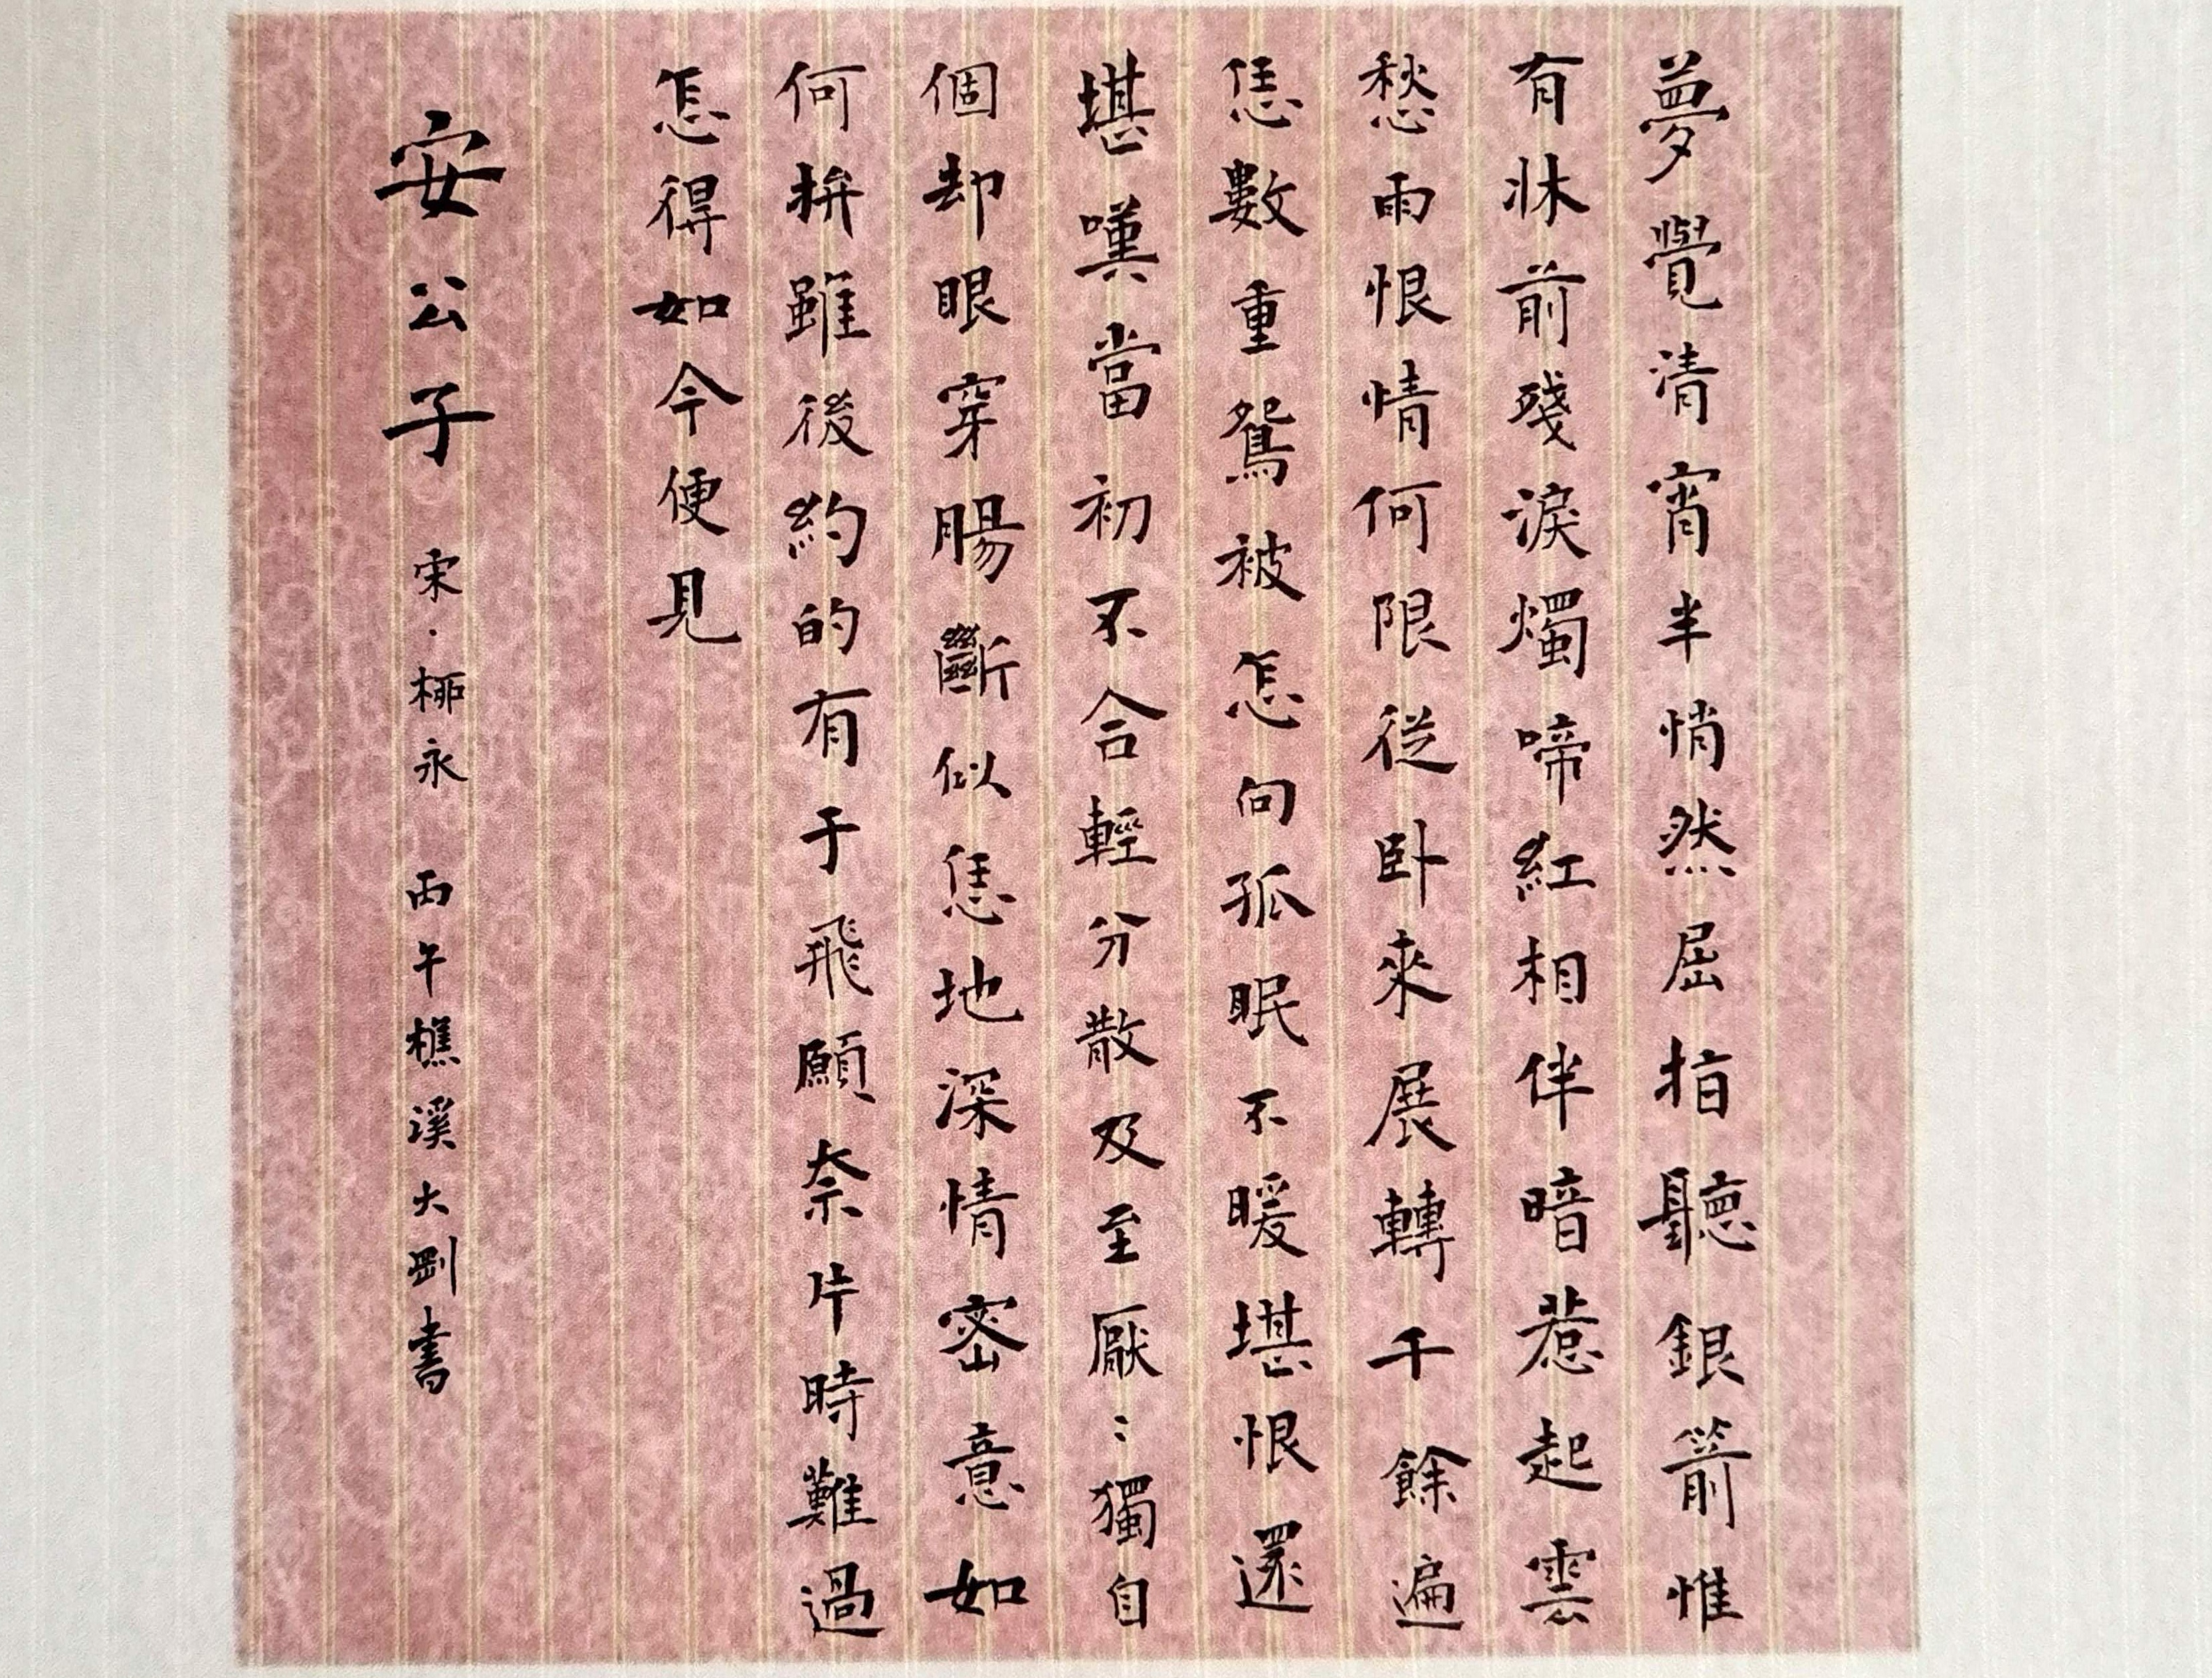 夢覺清宵半悄然屈指聽銀箭惟
有牀前殘淚燭啼紅相伴暗惹起雲
愁雨恨情何限從卧來展轉千餘遍
恁數重鴛被怎向孤眠不暖堪恨還
堪嘆當初不合輕分散及至厭〻獨自
個却眼穿腸斷似恁地深情密意如
何拚雖後約的有于飛願奈片時難過
怎得如今便見
安公子 宋·栁永 丙午樵溪大剛書